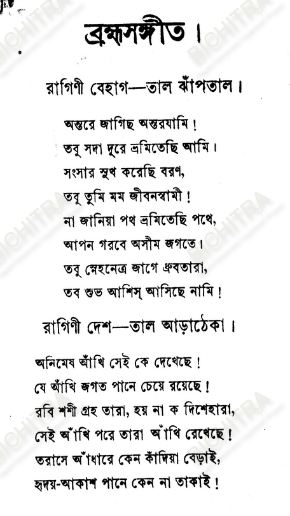 ব্রহ্মসঙ্গীত।
রাগিণী বেহাগ—তাল ঝাঁপতাল।
অন্তরে জাগিছ অন্তরযামি!
তবু সদা দূরে ভ্রমিতেছি আমি।
সংসার সুখ করেছি বরণ,
তবু তুমি মম জীবনস্বামী!
না জানিয়া পথ ভ্রমিতেছি পথে,
আপন গরবে অসীম জগতে।
তবু স্নেহনেত্র জাগে ধ্রুবতারা,
তব শুভ আশিস্ আসিছে নামি!
রাগিণী দেশ—তাল আড়াঠেকা।
অনিমেষ আঁখি সেই কে দেখেছে!
যে আঁখি জগত পানে চেয়ে রয়েছে!
রবি শশী গ্রহ তারা, হয় না ক দিশেহারা,
সেই আঁখি পরে তারা আঁখি রেখেছে!
তরাসে আঁধারে কেন কাঁদিয়া বেড়াই,
হৃদয়-আকাশ পানে কেন না তাকাই!
BICHITRA